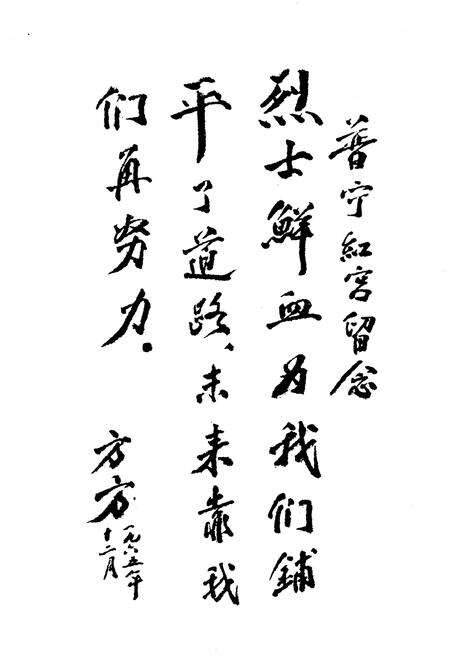 普宁红宫留念
烈士鮮血为我们鋪
平了道路、未来靠我
们再努力.
方方
一九六五年
十二月